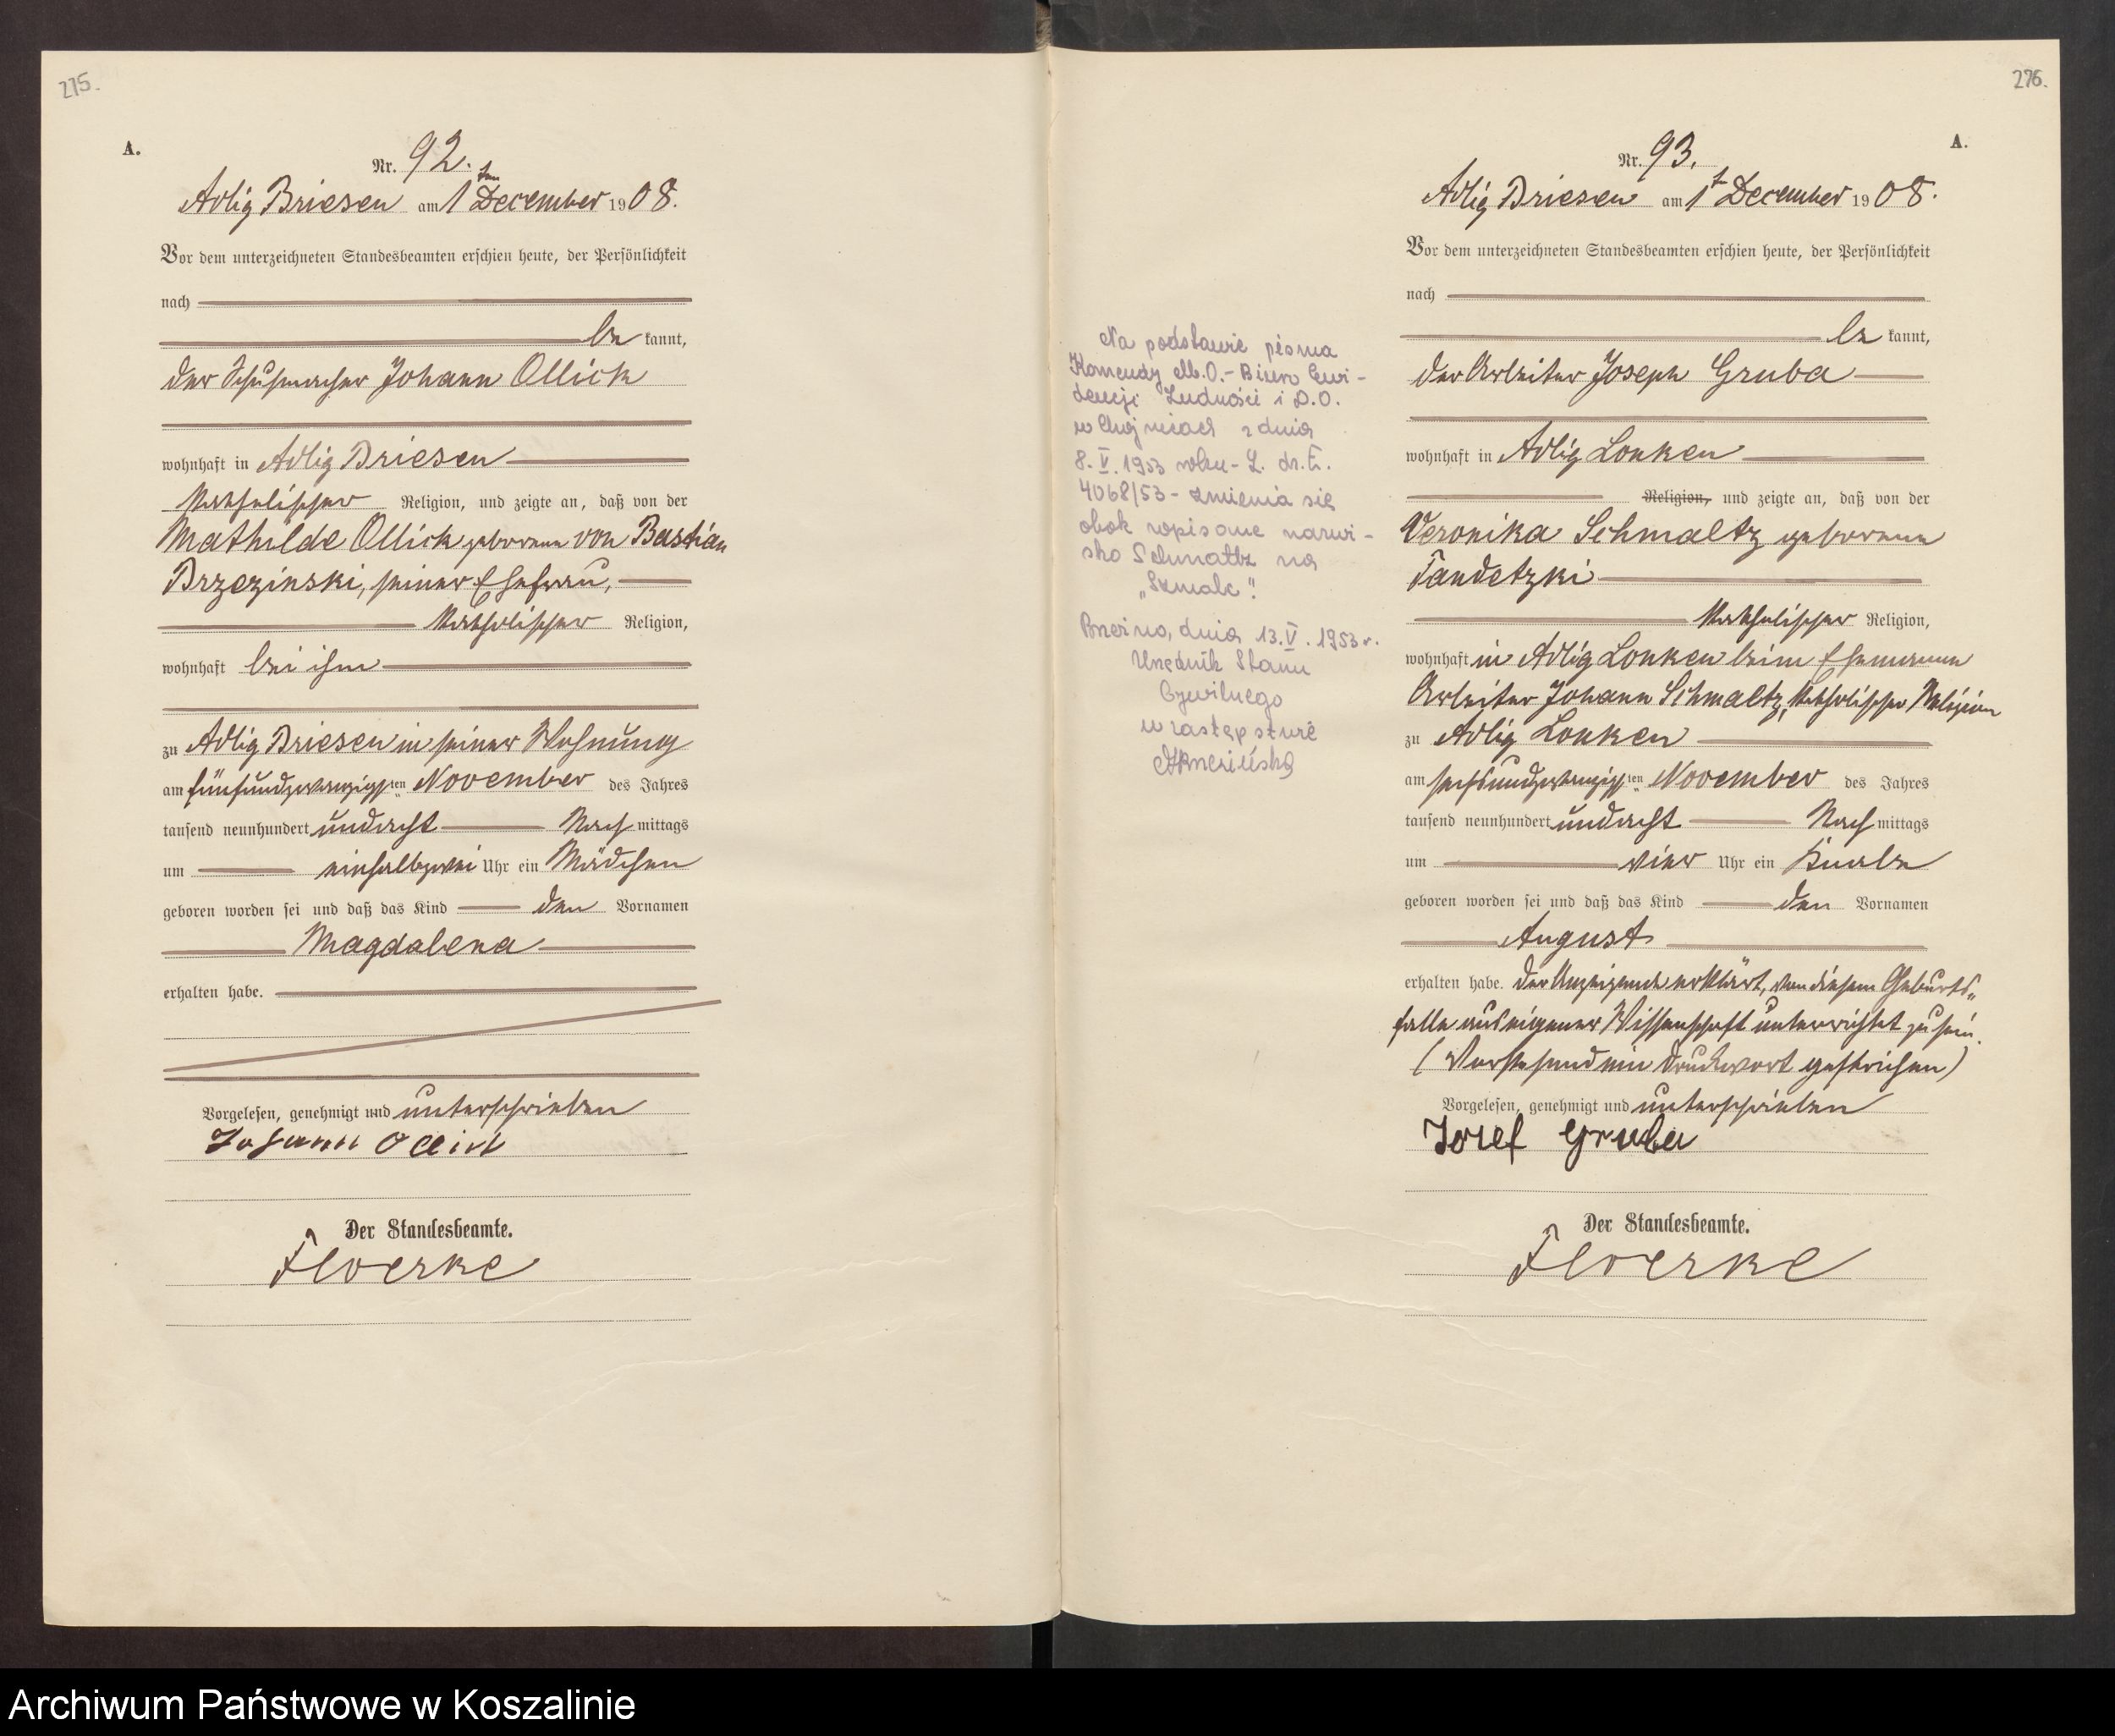 275.
A.
Nr. 92.
Adlig Briesen am 1ten December 1908.
Vor dem unterzeichneten Standesbeamten erschien heute, der Persönlichkeit
nach
be kannt,
der Schuhmacher Johann Ollick
wohnhaft in Adlig Briesen
katholischer Religion, und zeigte an, daß von der
Mathilde Ollick geborenen von Bastian
Brzezinski, seiner Ehefrau,
katholischer Religion,
wohnhaft bei ihm
zu Adlig Briesen in seiner Wohnung
am fünfundzwanzigsten November des Jahres
tausend neunhundert undacht Nach mittags
um einhalbzwei Uhr ein Mädchen
geboren worden sei und daß das Kind den Vornamen
Magdalena
erhalten habe.
Vorgelesen, genehmigt und unterschrieben
Johann Ollick
Der Standesbeamte.
Floerke
276.
A.
Nr. 93.
Adlig Briesen am 1t December 1908.
Vor dem unterzeichneten Standesbeamten erschien heute, der Persönlichkeit
nach
be kannt,
der Arbeiter Joseph Gruba
wohnhaft in Adlig Lonken
Religion, und zeigte an, daß von der
Veronika Schmaltz geborenen
Tandetzki
katholischer Religion,
wohnhaft in Adlig Lonken beim Ehemann
Arbeiter Johann Schmaltz, katholischer Religion
zu Adlig Lonken
am sechsundzwanzigsten November des Jahres
tausend neunhundert undacht Nach mittags
um vier Uhr ein Knabe
geboren worden sei und daß das Kind den Vornamen
August
erhalten habe. Der Anzeigende erklärt, von diesem Geburts-
falle aus eigener Wissenschaft unterrichtet zu sein.
(Vorstehend ein Druckwort gestrichen)
Vorgelesen, genehmigt und unterschrieben
Josef Gruba
Der Standesbeamte.
Floerke
Na podstawie pisma
Komendy M.O. - Biuro Ewi-
dencji Ludności i D.O.
w Chojnicach z dnia
8.V.1953 roku - L. dz. E.
4068/53 - zmienia się
obok wpisane nazwi-
sko Schmaltz na
„Szmalc".
Brzeźno, dnia 13.V.1953 r.
Urzędnik Stanu
Cywilnego
w zastępstwie
Archiwum Państwowe w Koszalinie